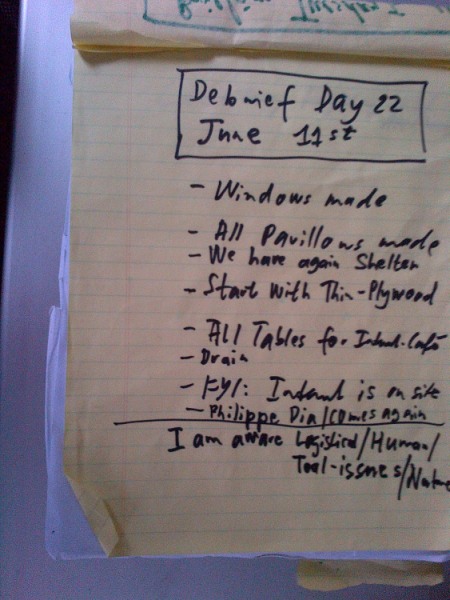 Debrief Day 22
June 11st
- Windows made
- All Pavillows made
- We have again Shelter
- Start with Thin-Plywood
- All Tables for Internet-Café
- Drain
- FYI: Internet is on site
- Philippe Dia/comes again
I am aware Logistical/Human/
Tool-issues/Nature